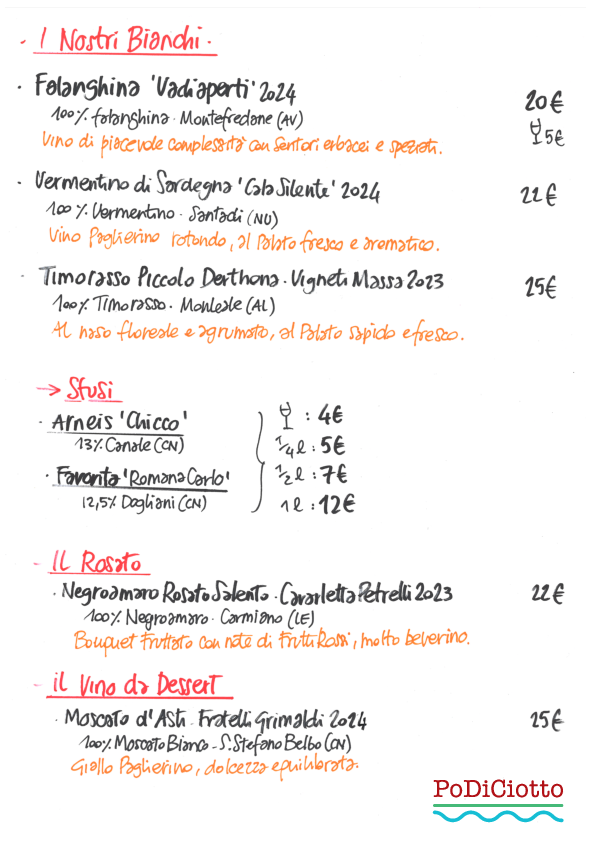 · I Nostri Bianchi ·
· Falanghina 'Vadiaperti' 2024 20€
100% falanghina · Montefredane (AV) 5€
Vino di piacevole complessità con sentori erbacei e speziati.
· Vermentino di Sardegna 'Cala Silente' 2024 22€
100% Vermentino · Santadi (NU)
Vino Paglierino rotondo, al Palato fresco e aromatico.
· Timorasso Piccolo Derthona · Vigneti Massa 2023 25€
100% Timorasso · Monleale (AL)
Al naso floreale e agrumato, al Palato sapido e fresco.
→ Sfusi
· Arneis 'Chicco' : 4€
13% Canale (CN) 1/4 l : 5€
· Favorita 'Romana Carlo' 1/2 l : 7€
12,5% Dogliani (CN) 1 l : 12€
- Il Rosato
· Negroamaro Rosato Salento · Cavarletta Petrelli 2023 22€
100% Negroamaro · Carmiano (LE)
Bouquet Fruttato con note di Frutti Rossi, molto beverino.
- il Vino da Dessert
· Moscato d'Asti · Fratelli Grimaldi 2024 25€
100% Moscato Bianco - S. Stefano Belbo (CN)
Giallo Paglierino, dolcezza equilibrata.
PoDiCiotto